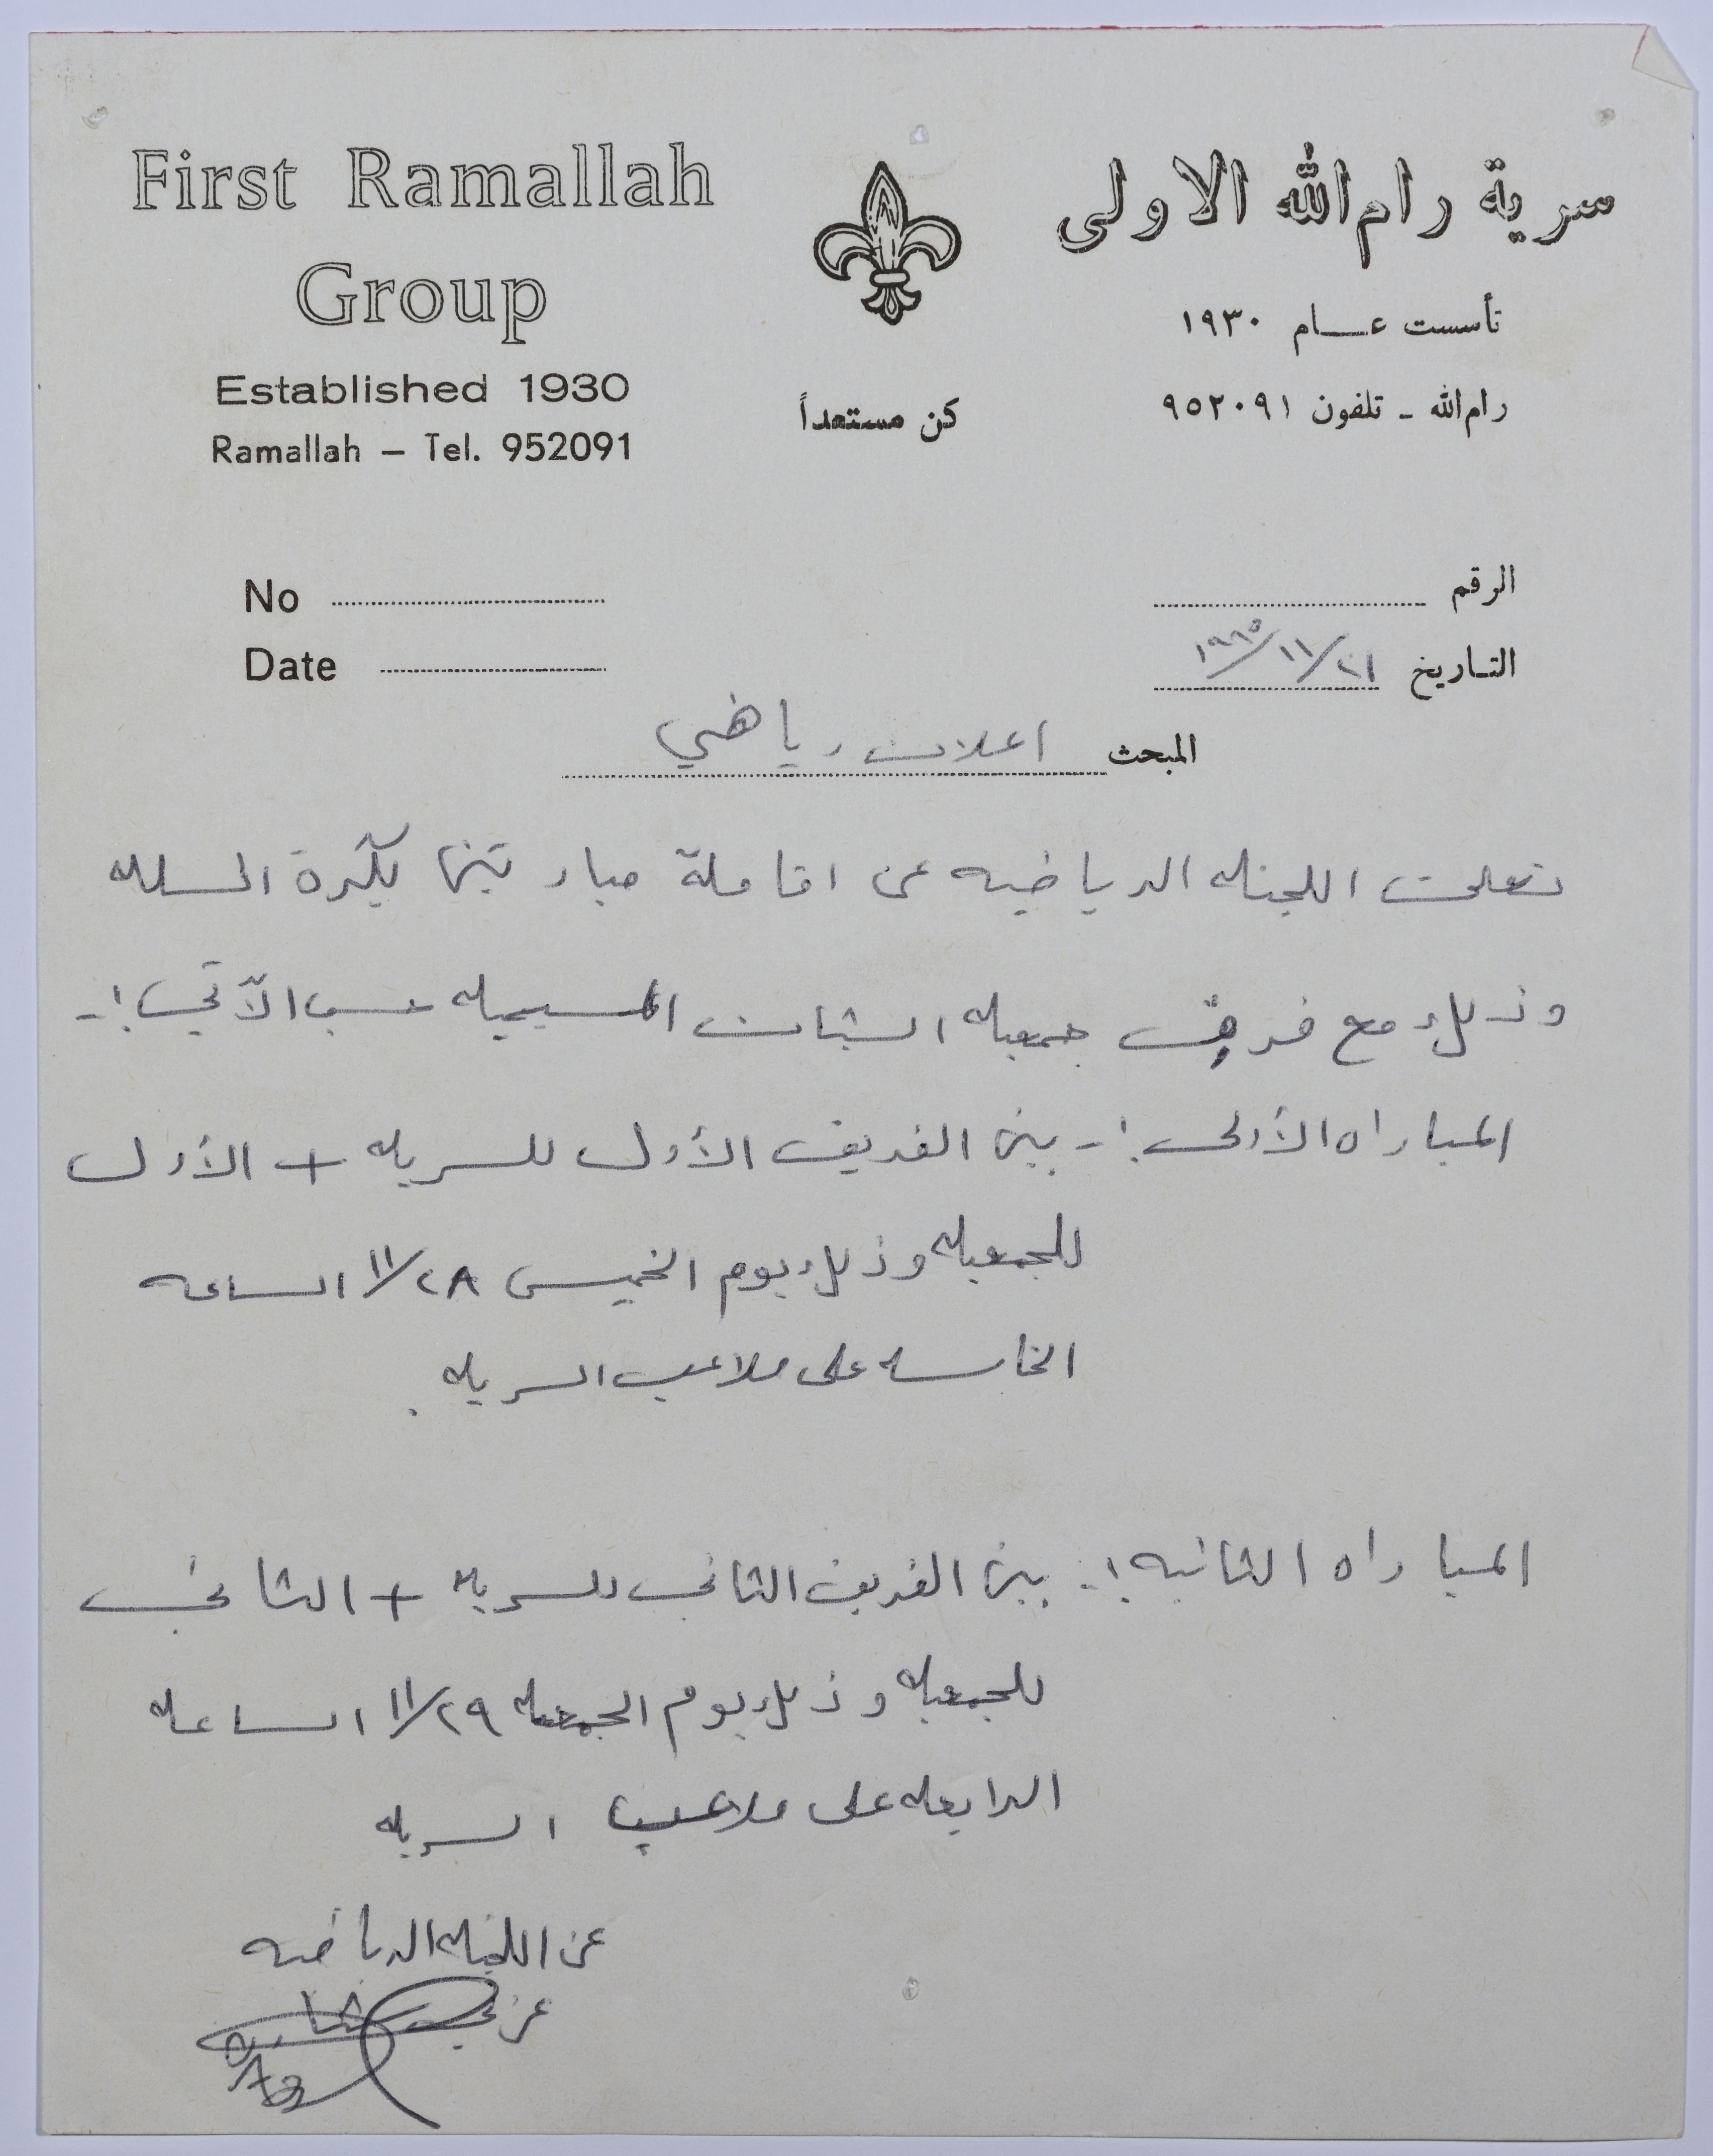 First Ramallah
Group
Established 1930
Ramallah – Tel. 952091
كن مستعداً
سرية رام الله الاولى
تأسست عــام ١٩٣٠
رام الله ـ تلفون ٩٥٢٠٩١
No
Date
الرقم
التـاريخ ٢١/١١/١٩٨٥
المبحث اعلان رياضي
تعلن اللجنه الرياضيه عن اقامة مبارتين بكرة السله
وذلك مع فريق جمعيه الشبان المسيحيه حسب الآتي :-
المباراه الأولى :- بين الفريق الأول للسريه + الأول
للجمعيه وذلك يوم الخميس ٢٨/١١ الساعه
الخامسه على ملاعب السريه .
المباراه الثانيه :- بين الفريق الثاني للسريه + الثاني
للجمعيه وذلك يوم الجمعه ٢٩/١١ الساعه
الرابعه على ملاعب السريه
عن اللجنه الرياضيه